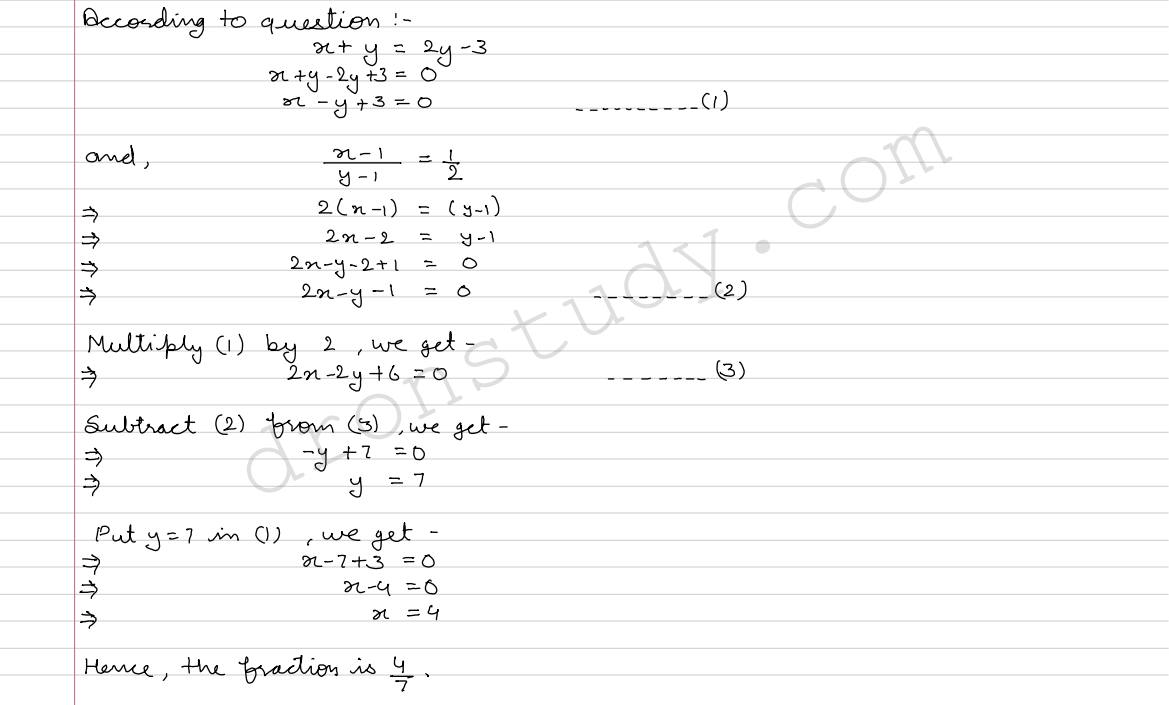 According to question :-
x + y = 2y - 3
x + y - 2y + 3 = 0
x - y + 3 = 0 ----------(1)
and, (x-1)/(y-1) = 1/2
⇒ 2(x-1) = (y-1)
⇒ 2x - 2 = y-1
⇒ 2x-y-2+1 = 0
⇒ 2x-y-1 = 0 --------(2)
Multiply (1) by 2, we get -
⇒ 2x-2y+6 = 0 -------(3)
Subtract (2) from (3), we get -
⇒ -y + 7 = 0
⇒ y = 7
Put y = 7 in (1), we get -
⇒ x-7+3 = 0
⇒ x-4 = 0
⇒ x = 4
Hence, the fraction is 4/7.
dronstudy.com